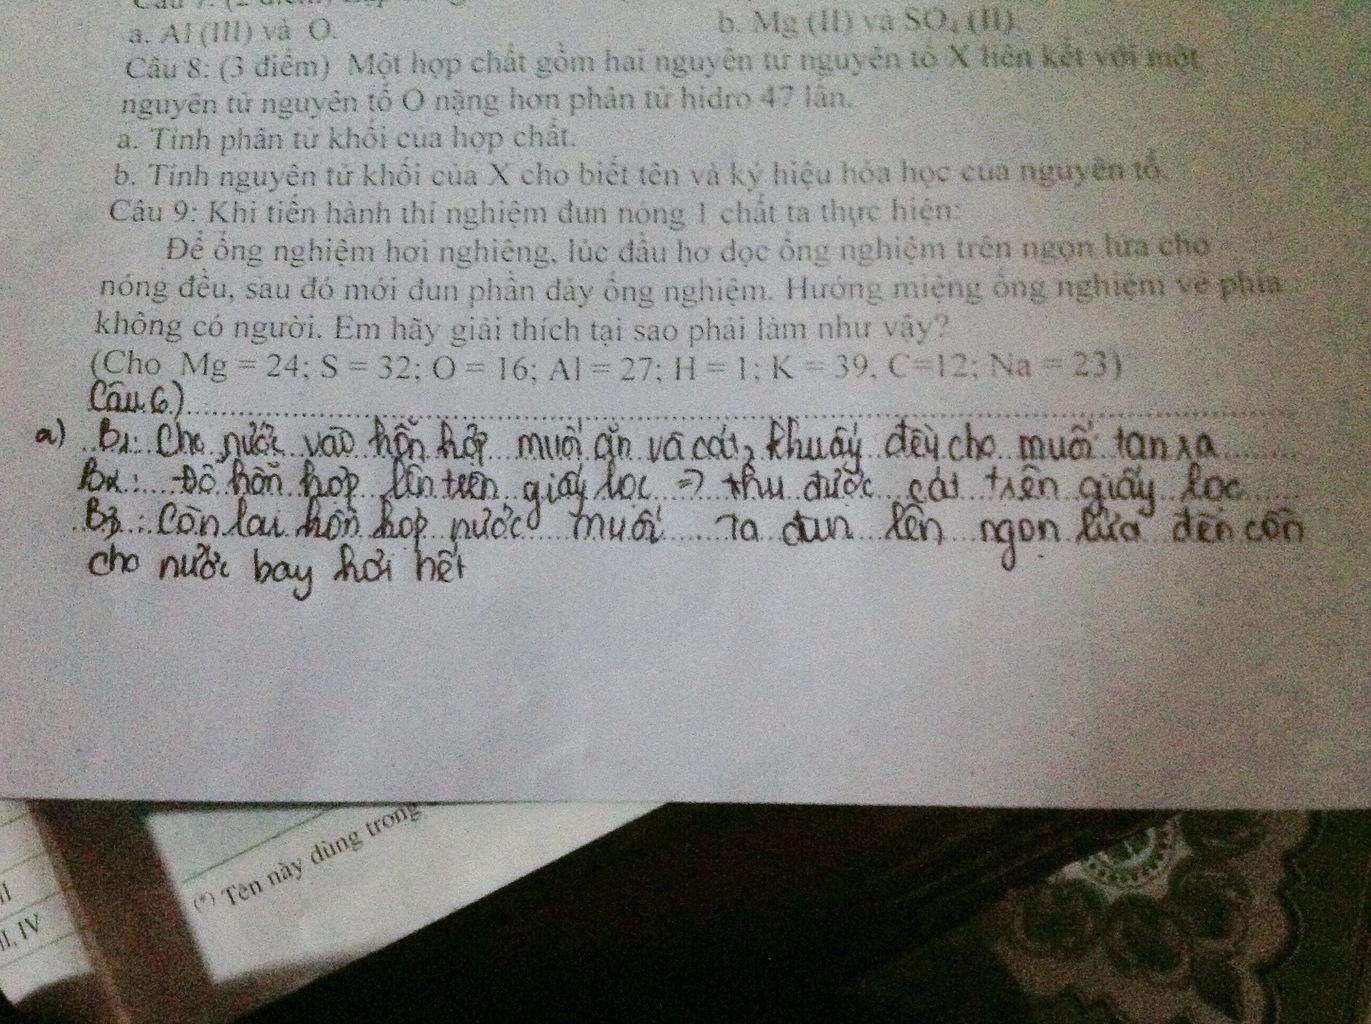 a. Al (III) và O.
b. Mg (II) và SO₄ (II).
Câu 8: (3 điểm) Một hợp chất gồm hai nguyên tử nguyên tố X liên kết với một
nguyên tử nguyên tố O nặng hơn phân tử hidro 47 lần.
a. Tính phân tử khối của hợp chất.
b. Tính nguyên tử khối của X cho biết tên và ký hiệu hóa học của nguyên tố.
Câu 9: Khi tiến hành thí nghiệm đun nóng 1 chất ta thực hiện:
Để ống nghiệm hơi nghiêng, lúc đầu hơ dọc ống nghiệm trên ngọn lửa cho
nóng đều, sau đó mới đun phần đáy ống nghiệm. Hướng miệng ống nghiệm về phía
không có người. Em hãy giải thích tại sao phải làm như vậy?
(Cho Mg = 24; S = 32; O = 16; Al = 27; H = 1; K = 39, C=12; Na = 23)
Câu 6)
a) B1: Cho nước vào hỗn hợp muối ăn và cát, khuấy đều cho muối tan ra
B2: Đổ hỗn hợp lên trên giấy lọc => thu được cát trên giấy lọc
B3: Còn lại hỗn hợp nước muối Ta đun lên ngọn lửa đèn cồn
cho nước bay hơi hết
(*) Tên này dùng trong
II, IV